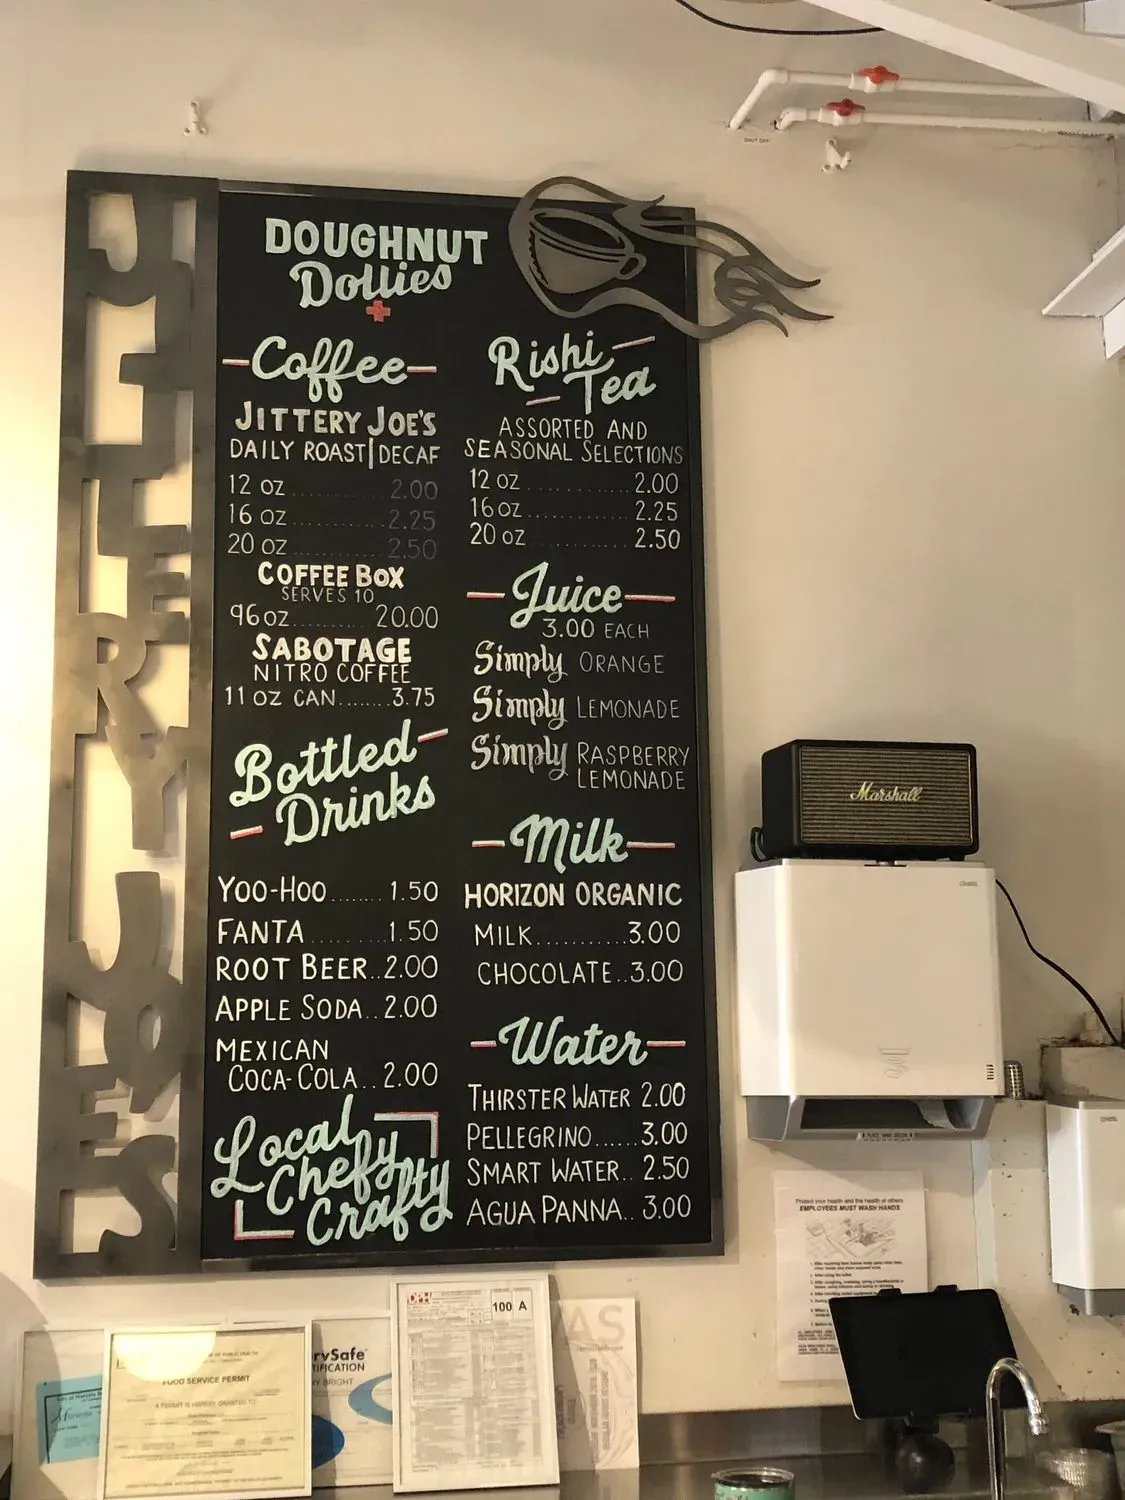 JITTERY JOE'S
DOUGHNUT
Dollies
Coffee
JITTERY JOE'S
DAILY ROAST|DECAF
12 OZ............2.00
16 OZ............2.25
20 OZ............2.50
COFFEE BOX
SERVES 10
96 OZ............20.00
SABOTAGE
NITRO COFFEE
11 OZ CAN.......3.75
Bottled
Drinks
YOO-HOO.......1.50
FANTA.........1.50
ROOT BEER..2.00
APPLE SODA..2.00
MEXICAN
COCA-COLA..2.00
Local
Chefy
Crafty
Rishi
Tea
ASSORTED AND
SEASONAL SELECTIONS
12 OZ............2.00
16 OZ............2.25
20 OZ............2.50
Juice
3.00 EACH
Simply ORANGE
Simply LEMONADE
Simply RASPBERRY
LEMONADE
Milk
HORIZON ORGANIC
MILK...........3.00
CHOCOLATE..3.00
Water
THIRSTER WATER 2.00
PELLEGRINO......3.00
SMART WATER..2.50
ACQUA PANNA..3.00
Marshall
Protect your health and the health of others
EMPLOYEES MUST WASH HANDS
FOOD SERVICE PERMIT
A PERMIT IS HEREBY GRANTED TO
rvSafe
TIFICATION
BRIGHT
DPH
100 A
AS